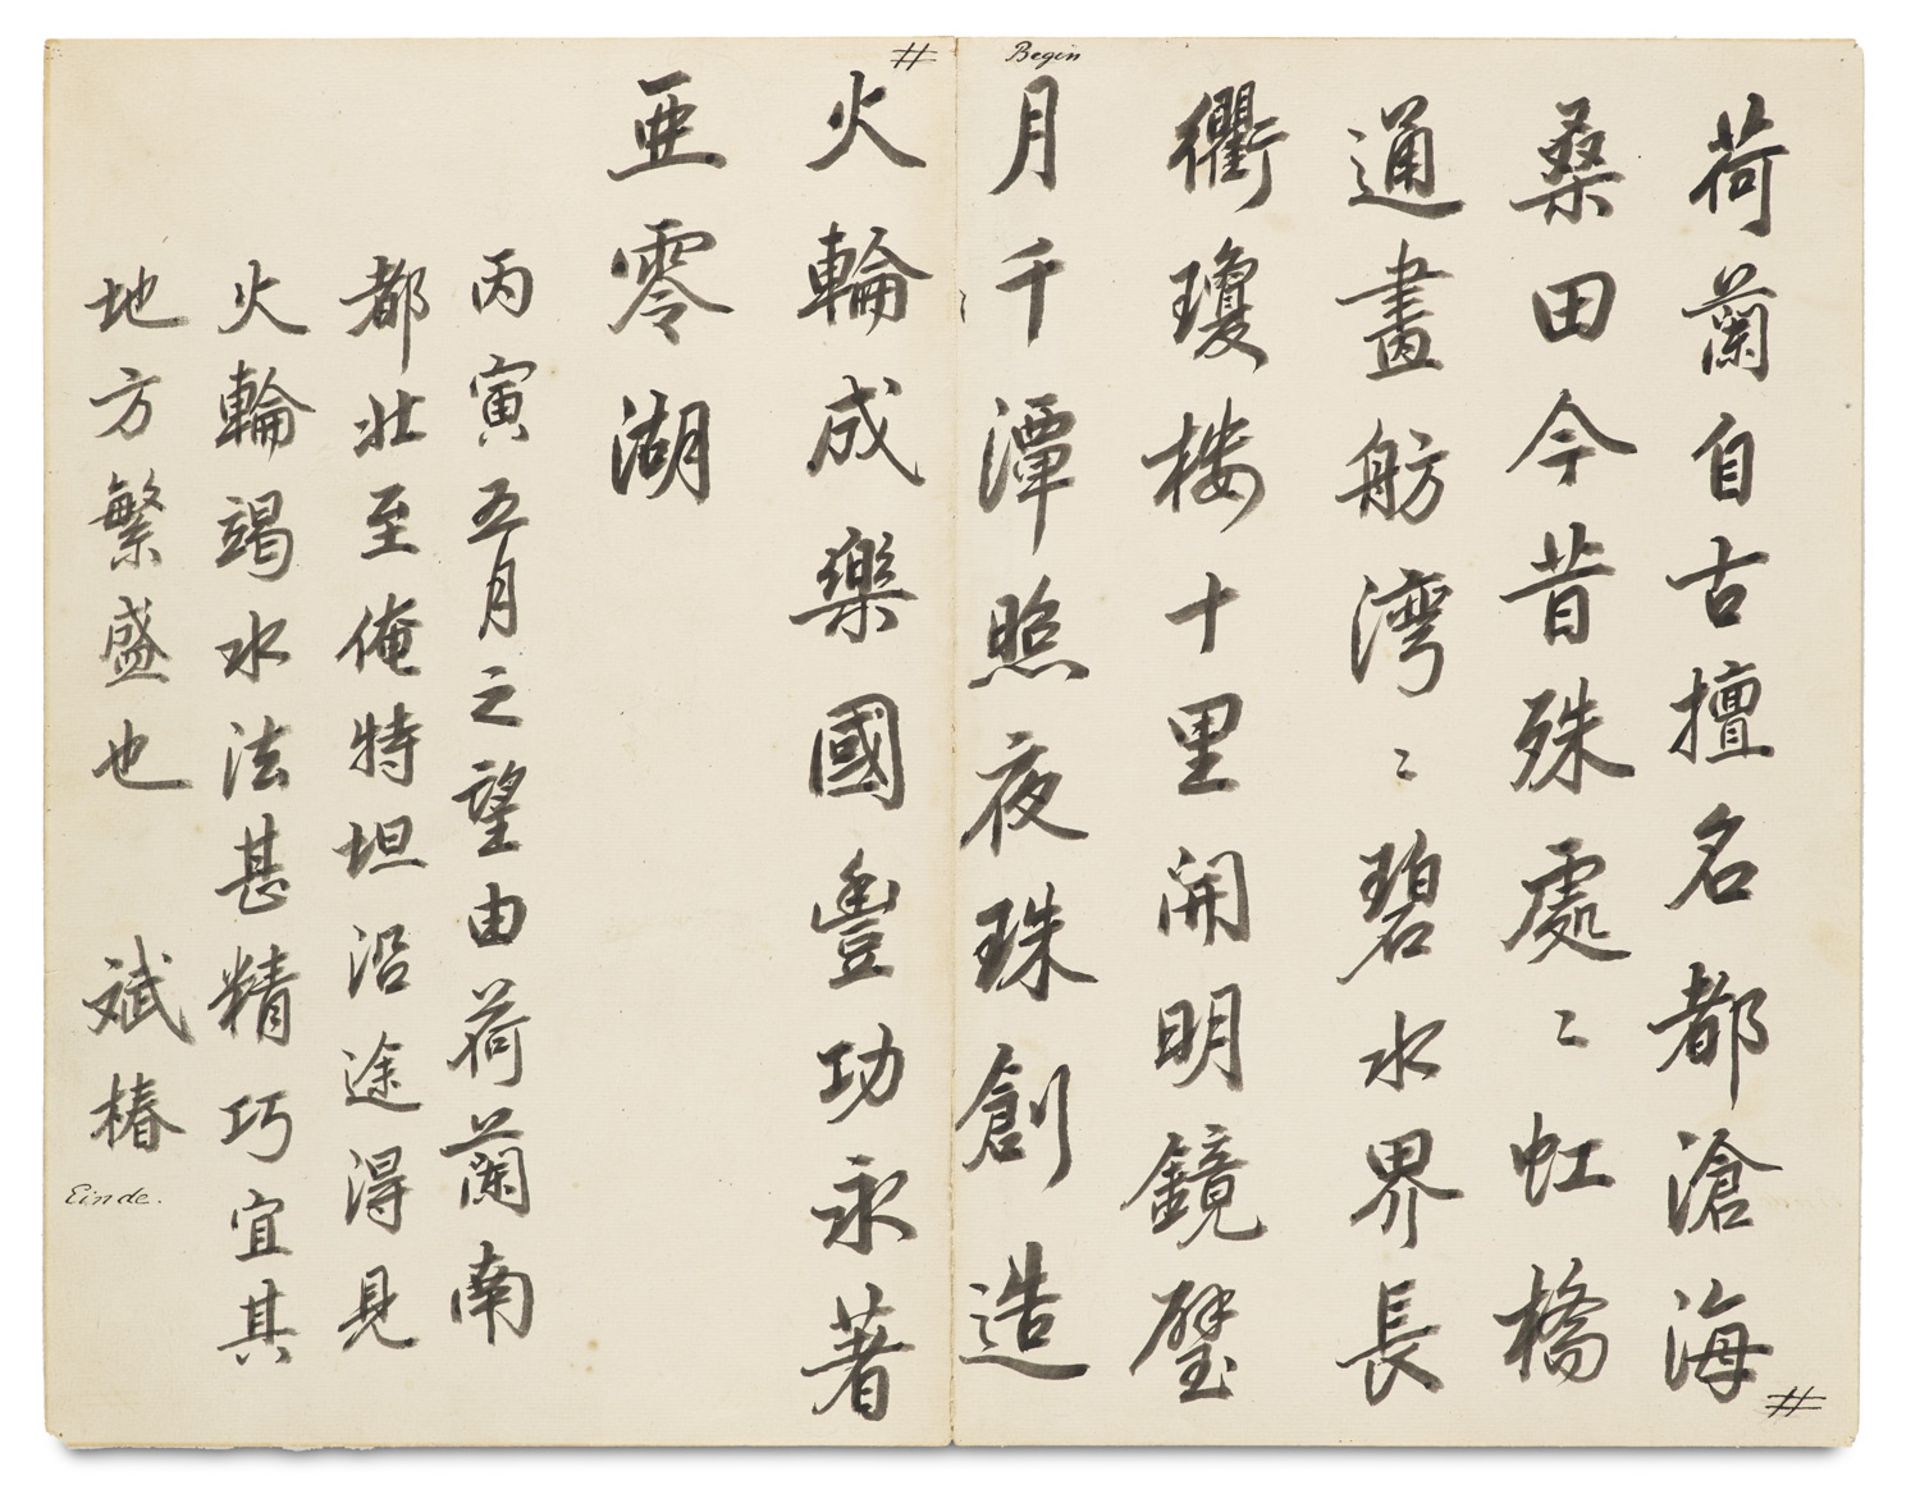 Begin
荷蘭自古擅名都滄海
桑田今昔殊處〻虹橋
通畫舫灣〻碧水界長
衢瓊楼十里開明鏡璧
月千潭照夜珠創造
火輪成樂國豐功永著
亜零湖
丙寅五月之望由荷蘭南
都壯至俺特坦沿途得見
火輪竭水法甚精巧宜其
地方繁盛也 斌椿
Einde.
#
#